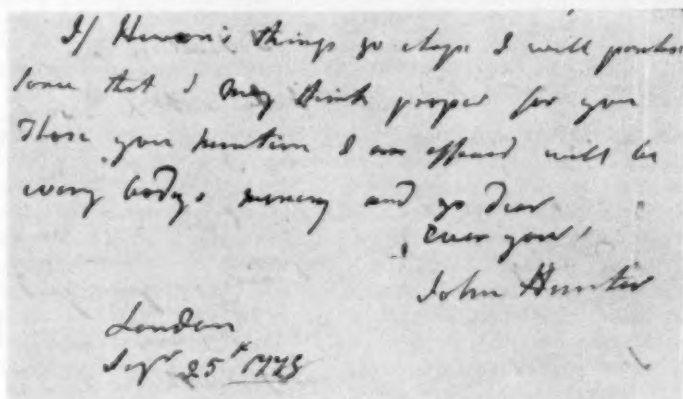 If Hewson's things go cheap I will purchase
some that I may think proper for you
Those you mention I am affraid will be
every bodys money and go dear
Ever yours
John Hunter
London
Sepr 25th 1775